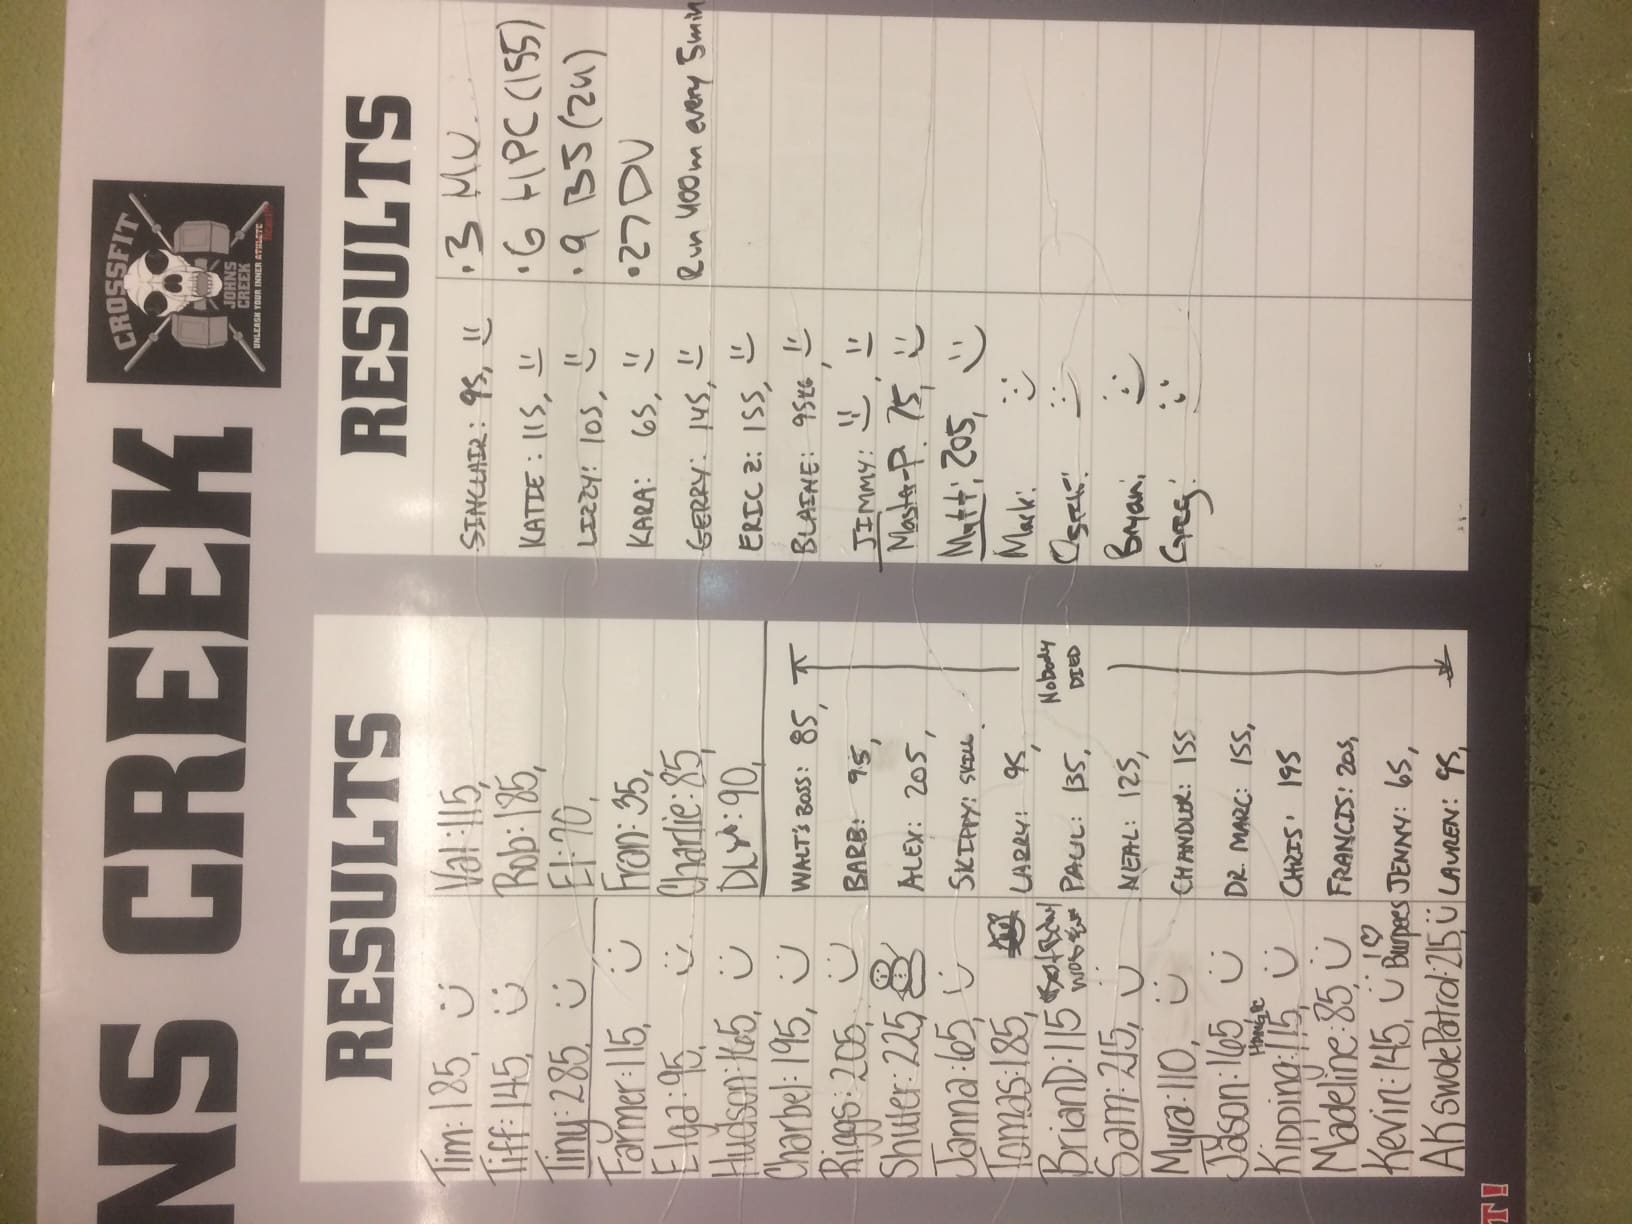 NS CREEK
CROSSFIT
JOHNS
CREEK
UNLEASH YOUR INNER ATHLETE
RESULTS
Tim: 185, :)
Tiff: 145, :)
Tiny: 285, :)
Farmer: 115, :)
Elga: 95, :)
Hudson: 165, :)
Charbel: 195, :)
Riggs: 205, :)
Shuler: 225,
Janna: 65, :)
Tomas: 185,
BrianD: 115
Sam: 215, :)
Myra: 110, :)
Jason: 165, :)
Kipping: 115, :)
Madeline: 85 :)
Kevin: 145, :) I ♡ Burpees
AKSwolePatrol: 215, :)
Val: 115,
Rob: 185,
El: 70,
Fran: 35,
Charlie: 85,
: 90,
WALT'S BOSS: 85,
BARB: 95,
ALEX: 205,
SKIPPY: SKILL.
LARRY: 95,
PAUL: 135,
NEAL: 125,
CHANDLER: 155
DR. MARC: 155,
CHRIS: 195
FRANCIS: 205,
JENNY: 65,
LAUREN: 95,
Nobody
DIED
RESULTS
SINCLAIR: 95, :)
KATIE: 115, :)
LIZZY: 105, :)
KARA: 65, :)
GERRY: 145, :)
ERIC Z: 155, :)
BLAINE: 95KG, :)
JIMMY: :), :)
Masta-P: 75, :)
Matt: 205, :)
Mark: :)
:)
Bryan: :)
Greg: :)
• 3 MU
• 6 HPC (155)
• 9 BJ (24)
• 27 DU
Run 400m every 5min
T!